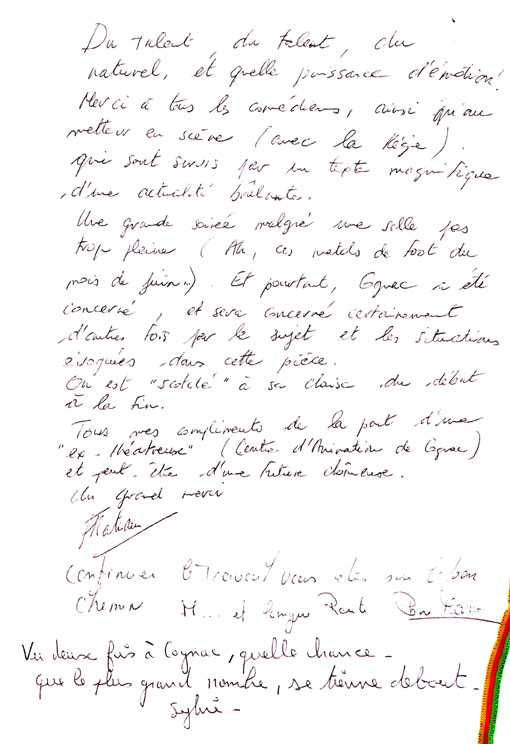 Du talent, du talent, du
naturel, et quelle puissance d'émotion!
Merci à tous les comédiens, ainsi qu'au
metteur en scène (avec la Régie).
qui sont servis par un texte magnifique
d'une actualité brûlante.
Une grande soirée malgré une salle pas
trop pleine (Ah, ces matchs de foot du
mois de juin..). Et pourtant, Cognac a été
concerné, et sera concerné certainement
d'autres fois par le sujet et les situations
évoquées dans cette pièce.
On est "scotché" à sa chaise du début
à la fin.
Tous mes compliments de la part d'une
"ex-théâtreuse" (Centre d'Animation de Cognac)
et peut-être d'une future chômeuse.
Un grand merci
Continuer le travail vous etes sur le bon
chemin M... et longue Route
Vu deux fois à Cognac, quelle chance -
que le plus grand nombre, se tienne debout -
Sylvie -